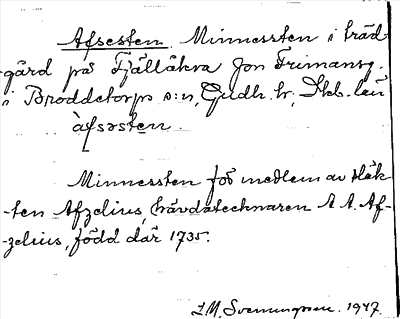 Afsesten Minnessten i träd-
gård på Fjälläkra Jon Frimansg.
i Broddetorps s:n, Gudh. hr, Skb. län
àfsəsten.
Minnessten för medlem av släk-
-ten Afzelius, hävdatecknaren A. A. Af-
-zelius, född där 1735.
I. M. Svenungsson. 1947.